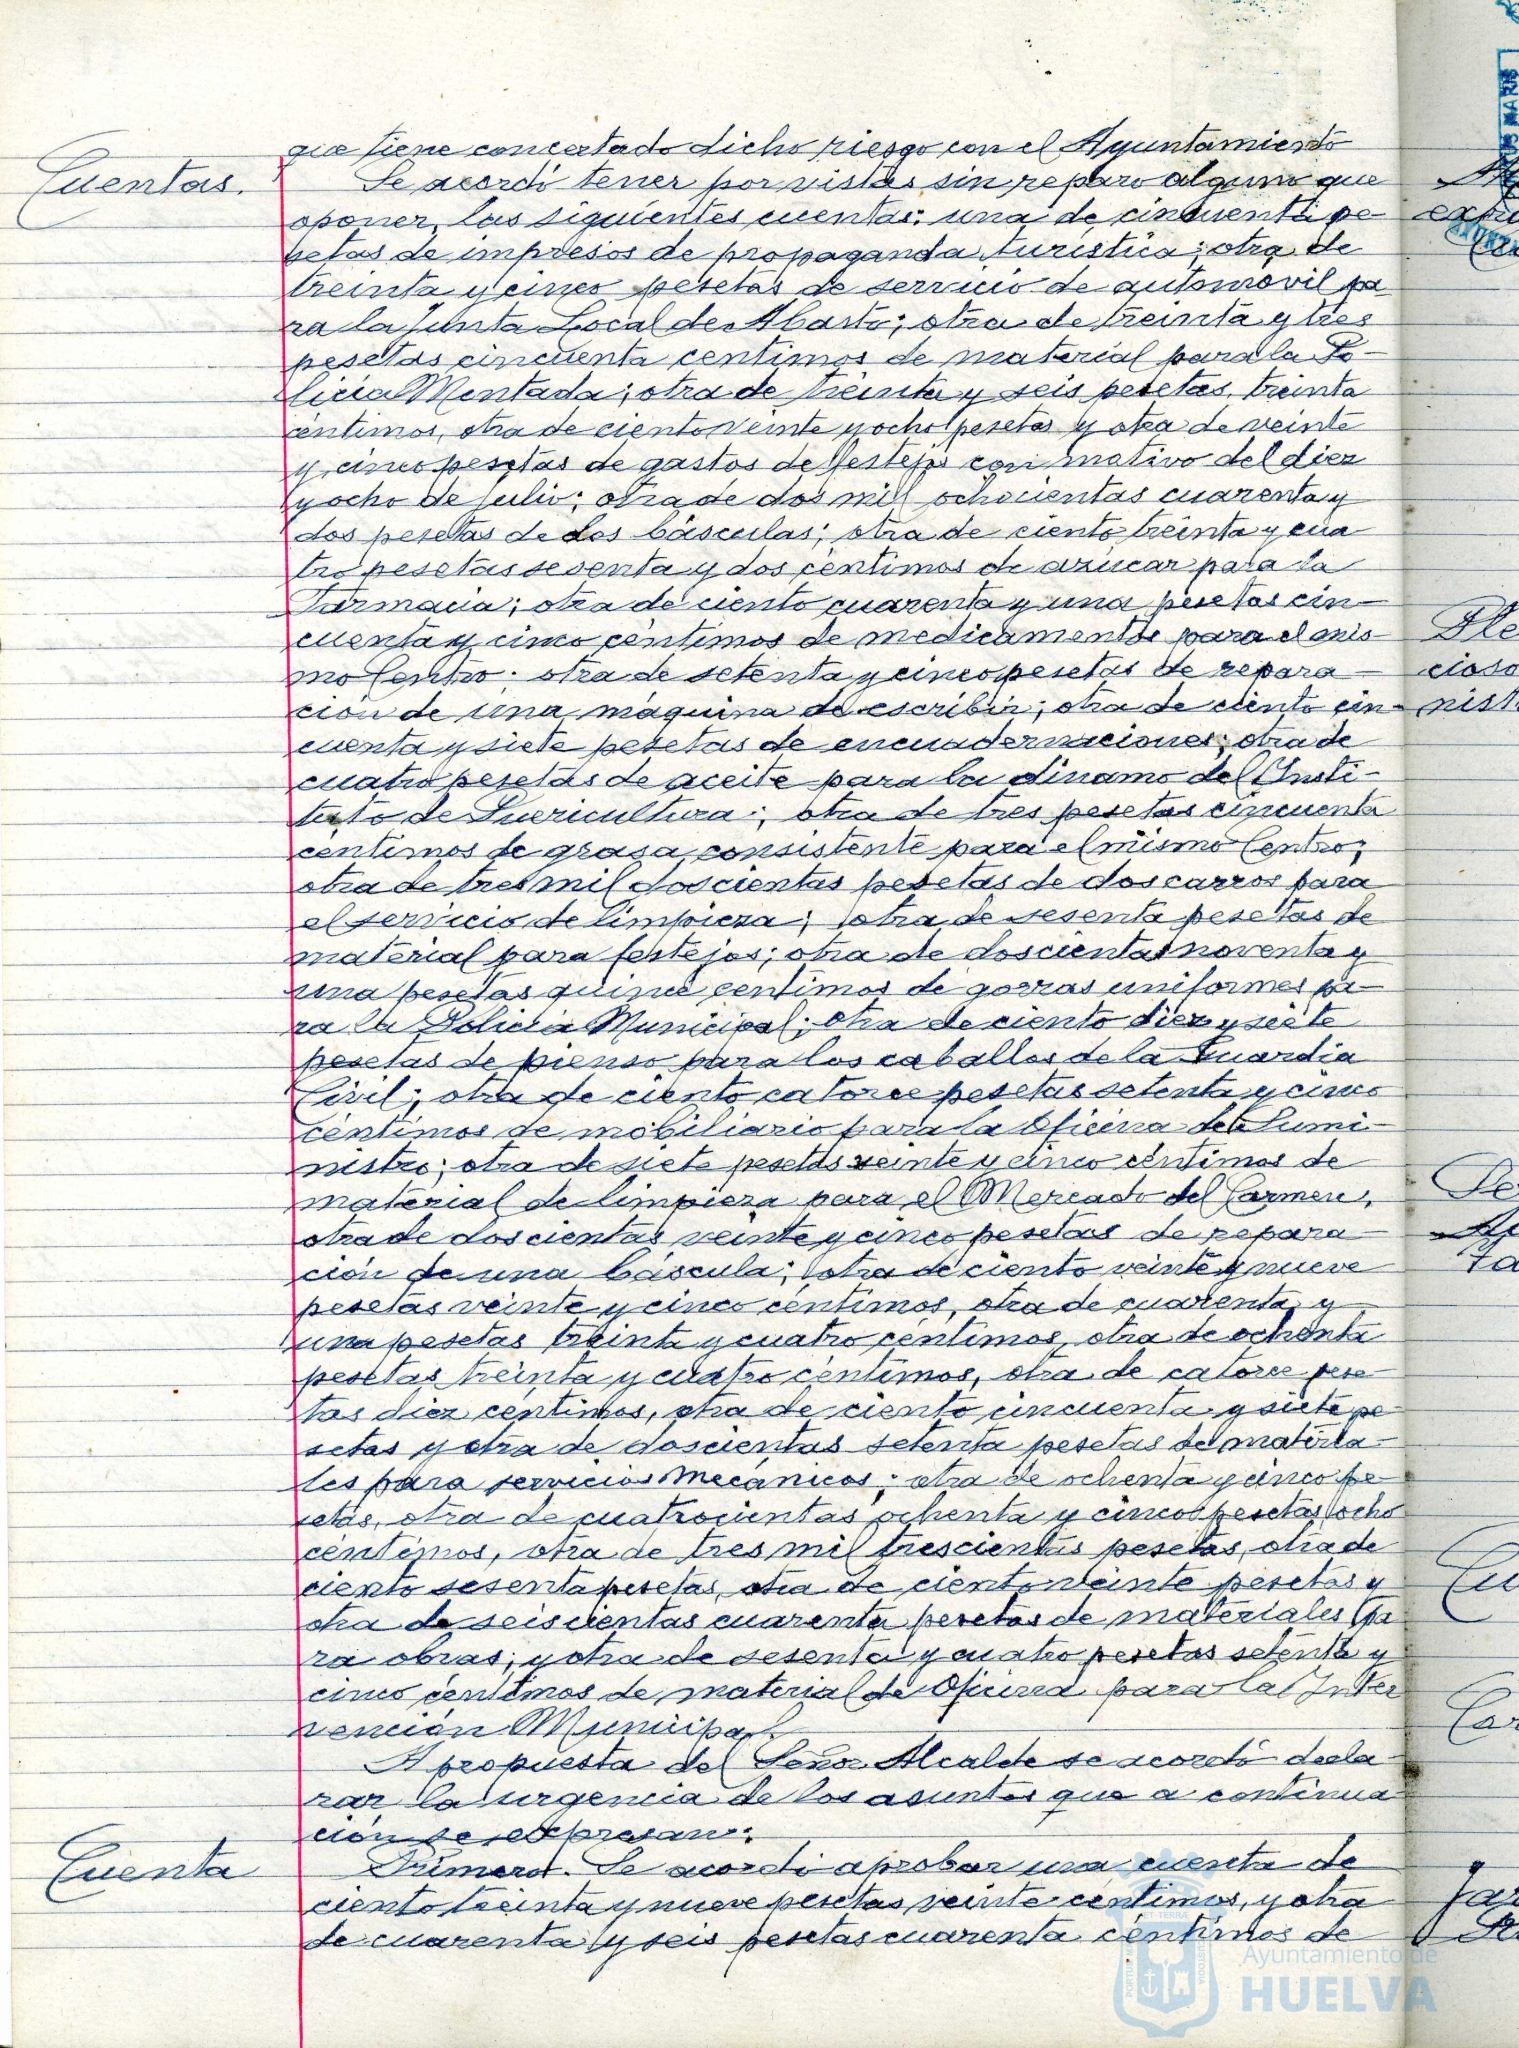 que tiene concertado dicho riesgo con el Ayuntamiento
Cuentas.
Se acordó tener por vistas sin reparo alguno que
oponer, las siguientes cuentas: una de cincuenta pe-
setas de impresos de propaganda turistica; otra de
treinta y cinco pesetas de servicio de automóvil pa-
ra la Junta Local de Abasto; otra de treinta y tres
pesetas cincuenta centimos de material para la Po-
licia Montada; otra de treinta y seis pesetas treinta
centimos, otra de ciento veinte y ocho pesetas y otra de veinte
y cinco pesetas de gastos de festejos con motivo del diez
y ocho de julio; otra de dos mil ochocientas cuarenta y
dos pesetas de dos básculas; otra de ciento treinta y cua
tro pesetas sesenta y dos céntimos de azucar para la
Farmacia; otra de ciento cuarenta y una pesetas cin-
cuenta y cinco céntimos de medicamentos para el mis-
mo Centro; otra de setenta y cinco pesetas de repara-
ción de una máquina de escribir; otra de ciento cin-
cuenta y siete pesetas de encuadernaciones; otra de
cuatro pesetas de aceite para la dinamo del Insti-
tuto de Puericultura; otra de tres pesetas cincuenta
céntimos de grasa consistente para el mismo Centro;
otra de tres mil doscientas pesetas de dos carros para
el servicio de limpieza; otra de sesenta pesetas de
material para festejos; otra de doscientas noventa y
una pesetas quince centimos de gorras uniformes pa-
ra la Policia Municipal; otra de ciento diez y siete
pesetas de pienso para los caballos de la Guardia
Civil; otra de ciento catorce pesetas setenta y cinco
céntimos de mobiliario para la Oficina de Sumi-
nistro; otra de siete pesetas veinte y cinco céntimos de
material de limpieza para el Mercado del Carmen,
otra de doscientas veinte y cinco pesetas de repara
ción de una báscula; otra de ciento veinte y nueve
pesetas veinte y cinco céntimos, otra de cuarenta y
una pesetas treinta y cuatro céntimos, otra de ochenta
pesetas treinta y cuatro céntimos, otra de catorce pese
tas diez centimos, otra de ciento cincuenta y siete pe
setas y otra de doscientas setenta pesetas de materia-
les para servicios Mecánicos; otra de ochenta y cinco pe-
setas, otra de cuatrocientas ochenta y cinco pesetas ocho
centimos, otra de tres mil trescientas pesetas, otra de
ciento sesenta pesetas, otra de ciento veinte pesetas y
otra de seiscientas cuarenta pesetas de materiales pa
ra obras; y otra de sesenta y cuatro pesetas setenta y
cinco céntimos de material de Oficina para la Inter
vención Municipal.
A propuesta del Señor Alcalde se acordó decla-
rar la urgencia de los asuntos que a continua
ción se expresan:
Cuenta
Primero. Se acordó aprobar una cuenta de
ciento treinta y nueve pesetas veinte centimos, y otra
de cuarenta y seis pesetas cuarenta céntimos de
Ayuntamiento de
HUELVA